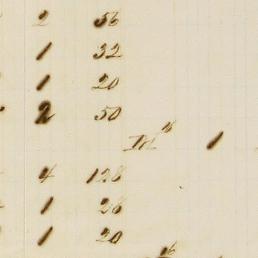 2 56
1 32
1 20
2 50
1
4 128
1 28
1 20